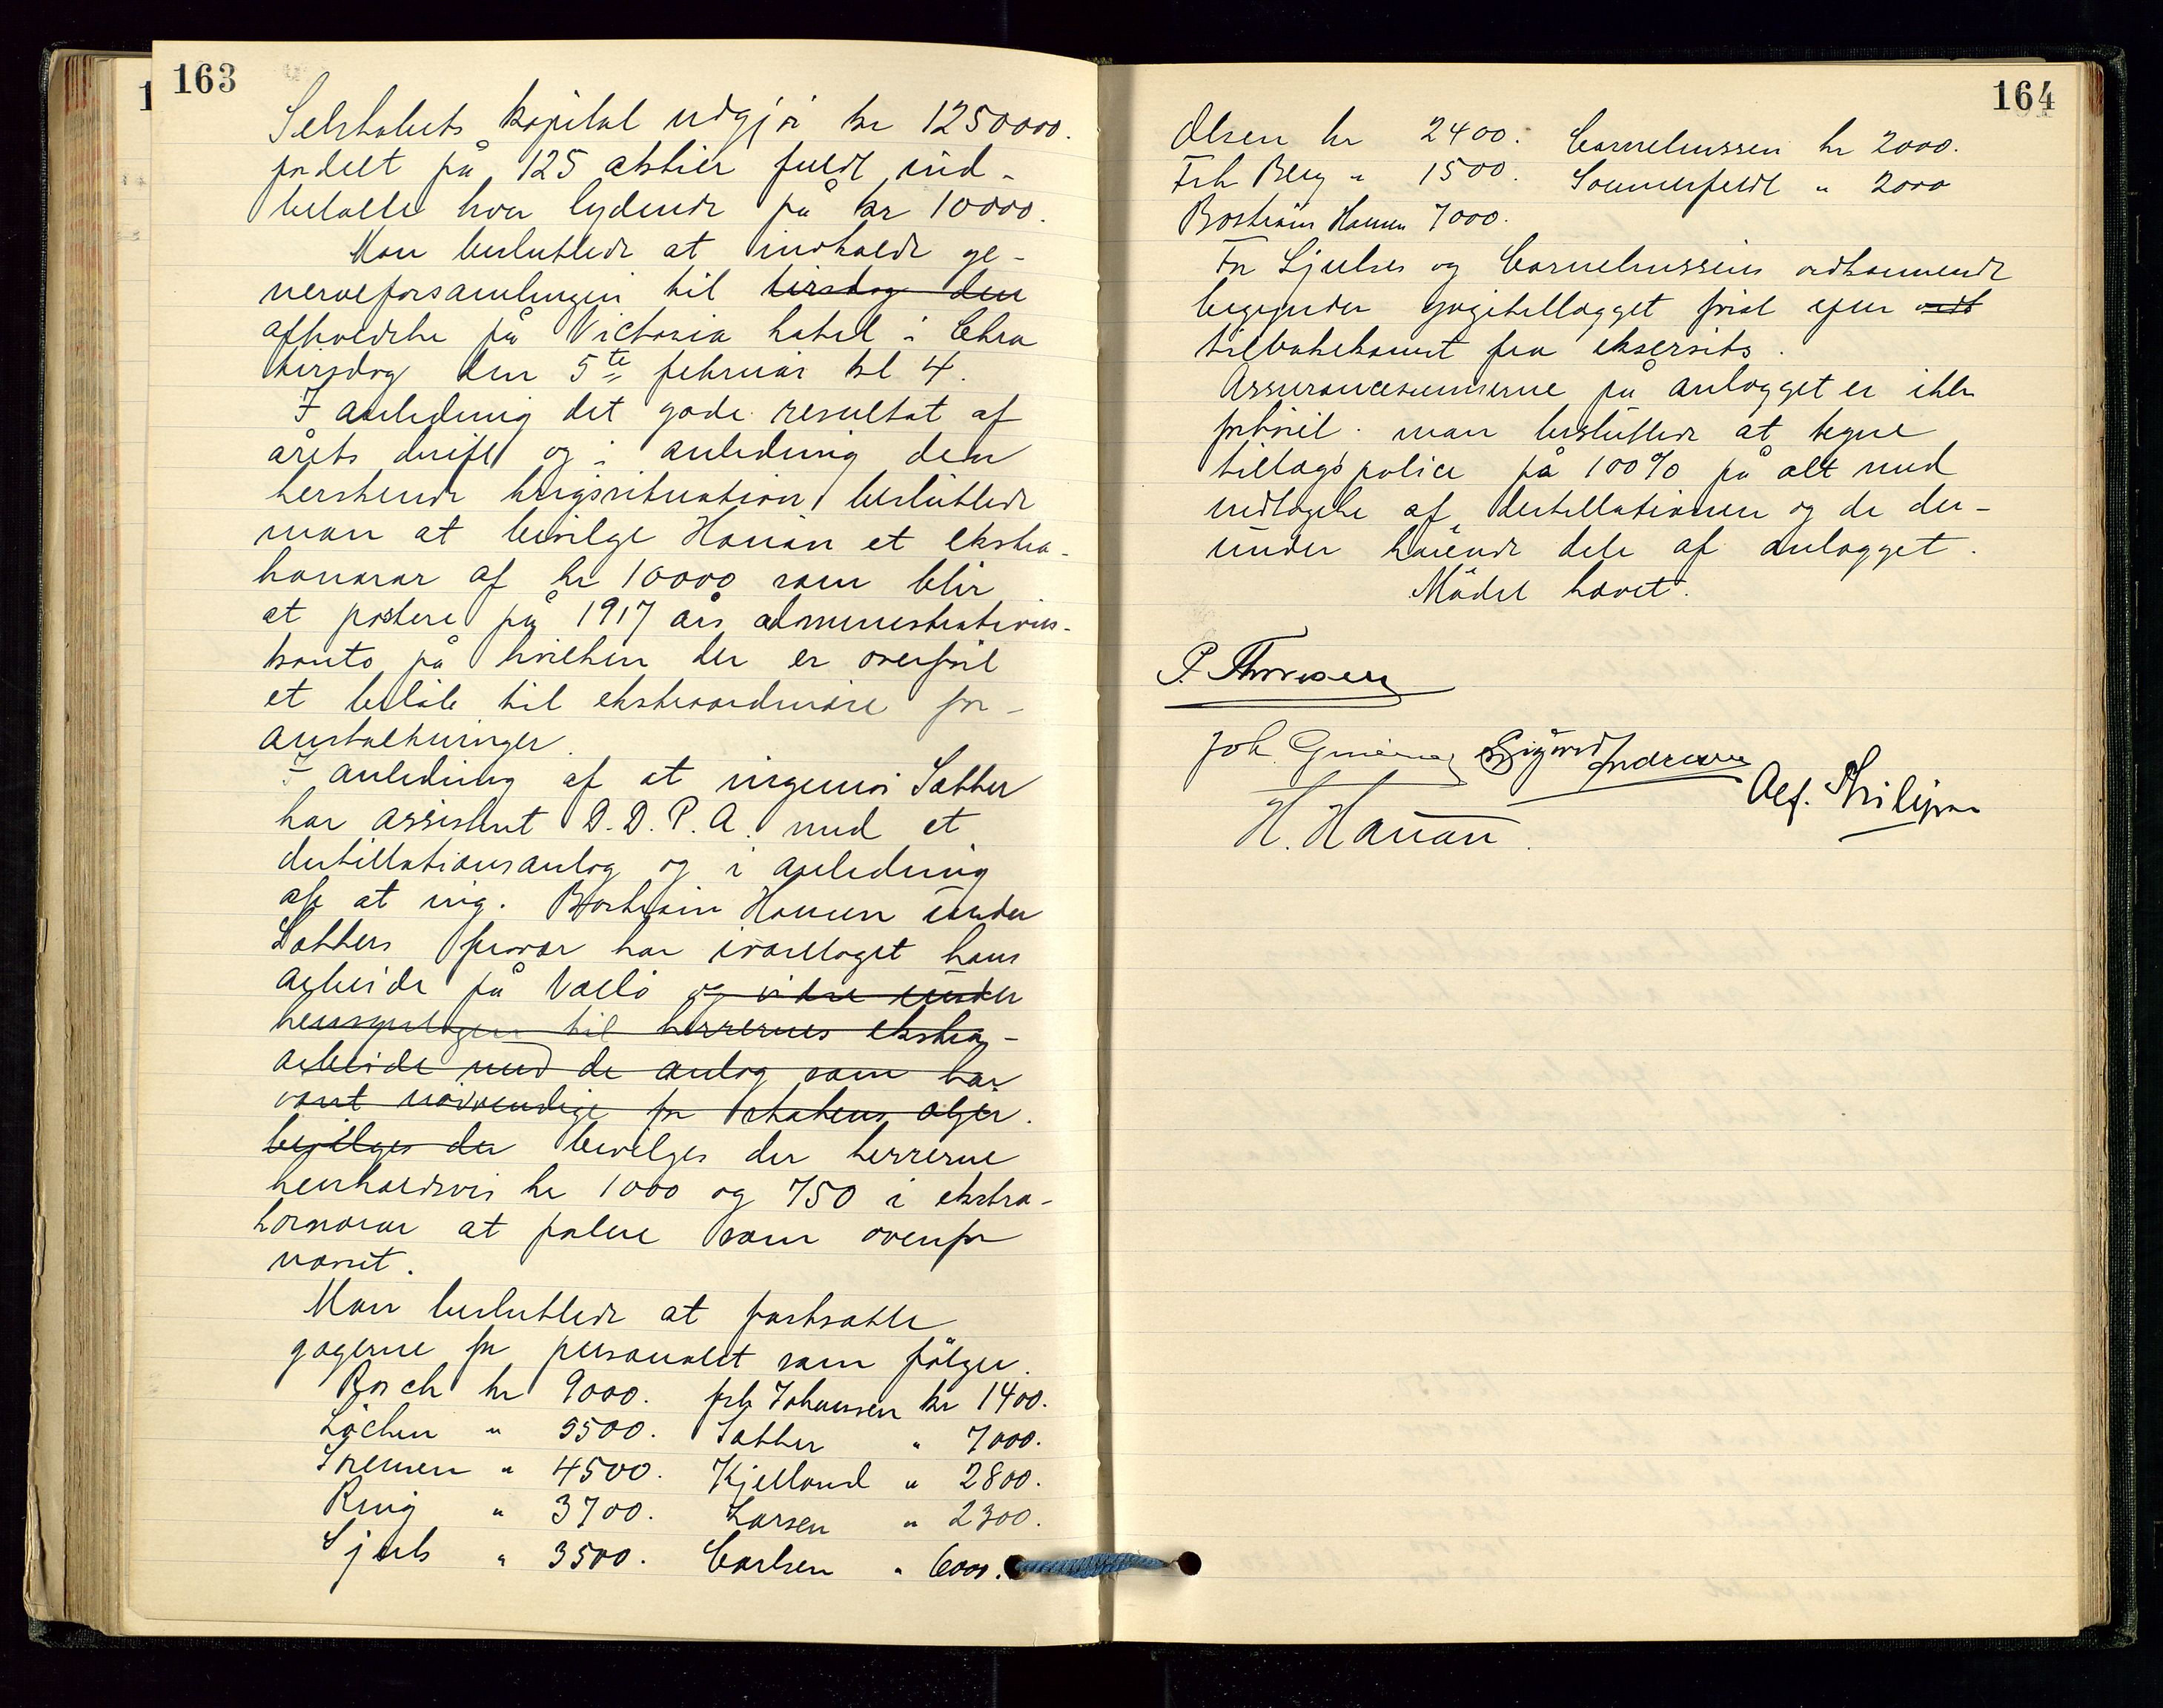 163
Selskabets kapital udgjör kr 1250000.
fordelt på 125 aktier fuldt ind-
betalte hver lydende på kr 10000.
Man besluttede at indkalde ge-
neralforsamlingen til tirsdag den
afholdelse på Victoria hotel i Chra
tirsdag den 5te februar kl 4.
I anledning det gode resultat af
årets drift og i anledning den
herskende krigssituation besluttede
man at bevilge Hauan et ekstra-
honorar af kr 10000 som blir
at postere på 1917 års administrations-
konto på hvilken der er overfört
et belöb til ekstraordinære for-
anstaltninger.
I anledning af at ingeniör Sæther
har assistert D.D.P.A. med et
destillationsanlæg og i anledning
af at ing. Boström Hansen under
Sæthers fravær har ivaretaget hans
arbeide på Vallö og videre under
hensyntagen til herrernes ekstra-
arbeide med de anlæg som har
været nödvendige for statens oljer.
bevilges der bevilges der herrerne
henholdsvis kr 1000 og 750 i ekstra-
honorar at postere som ovenfor
nævnt.
Man besluttede at fastsætte
gagerne for personalet som fölger.
Borch kr 9000. frk Johansen kr 1400.
Löchen " 5500. Sæther " 7000.
Sörensen " 4500. Kjelland " 2800.
Ring " 3700. Larsen " 2300.
Sjuls " 3500. Carlsen " 6000.
164
Olsen kr 2400. Cornelinssen kr 2000.
Frk Berg " 1500. Sommerfeldt " 2000
Boström Hansen 7000.
For Sjulses og Cornelinssens vedkommende
begynder gagetillægget först efter
tilbakekomst fra eksersits.
Assurancesummerne på anlægget er ikke
forhöiet. man besluttede at tegne
tillægspolice på 100% på alt med
undtagelse af destillationen og de der-
under hörende dele af anlægget.
Mödet hævet.
P. Thoresen
Joh. Sigurd Andersen
Alf.
H. Hauan.